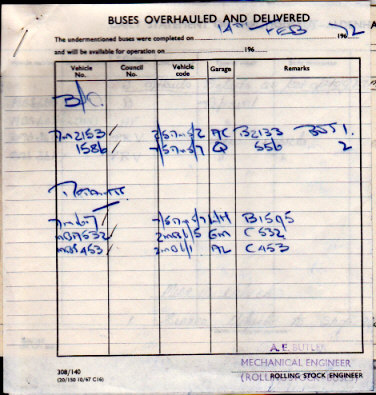 BUSES OVERHAULED AND DELIVERED
The undermentioned buses were completed on 14TH FEB 1962
and will be available for operation on 196
Vehicle No. Council No. Vehicle code Garage Remarks
B/C.
RM2153 / 2/5RM5/2 AC B2133 BST 1.
1586 / 7/5RM5/7 Q 556 2
RM67 / 7/5RM5/7 B1595
MB7532 / 2MB1/5 GM C532
MBS453 / 2MB1/1 AL C453
A. E. BUTLER
MECHANICAL ENGINEER
(ROLLING STOCK - BUSES)
ROLLING STOCK ENGINEER
308/140
(20/150 10/67 C16)